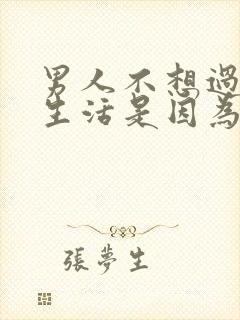 男人不想過
生活是因為
張夢生